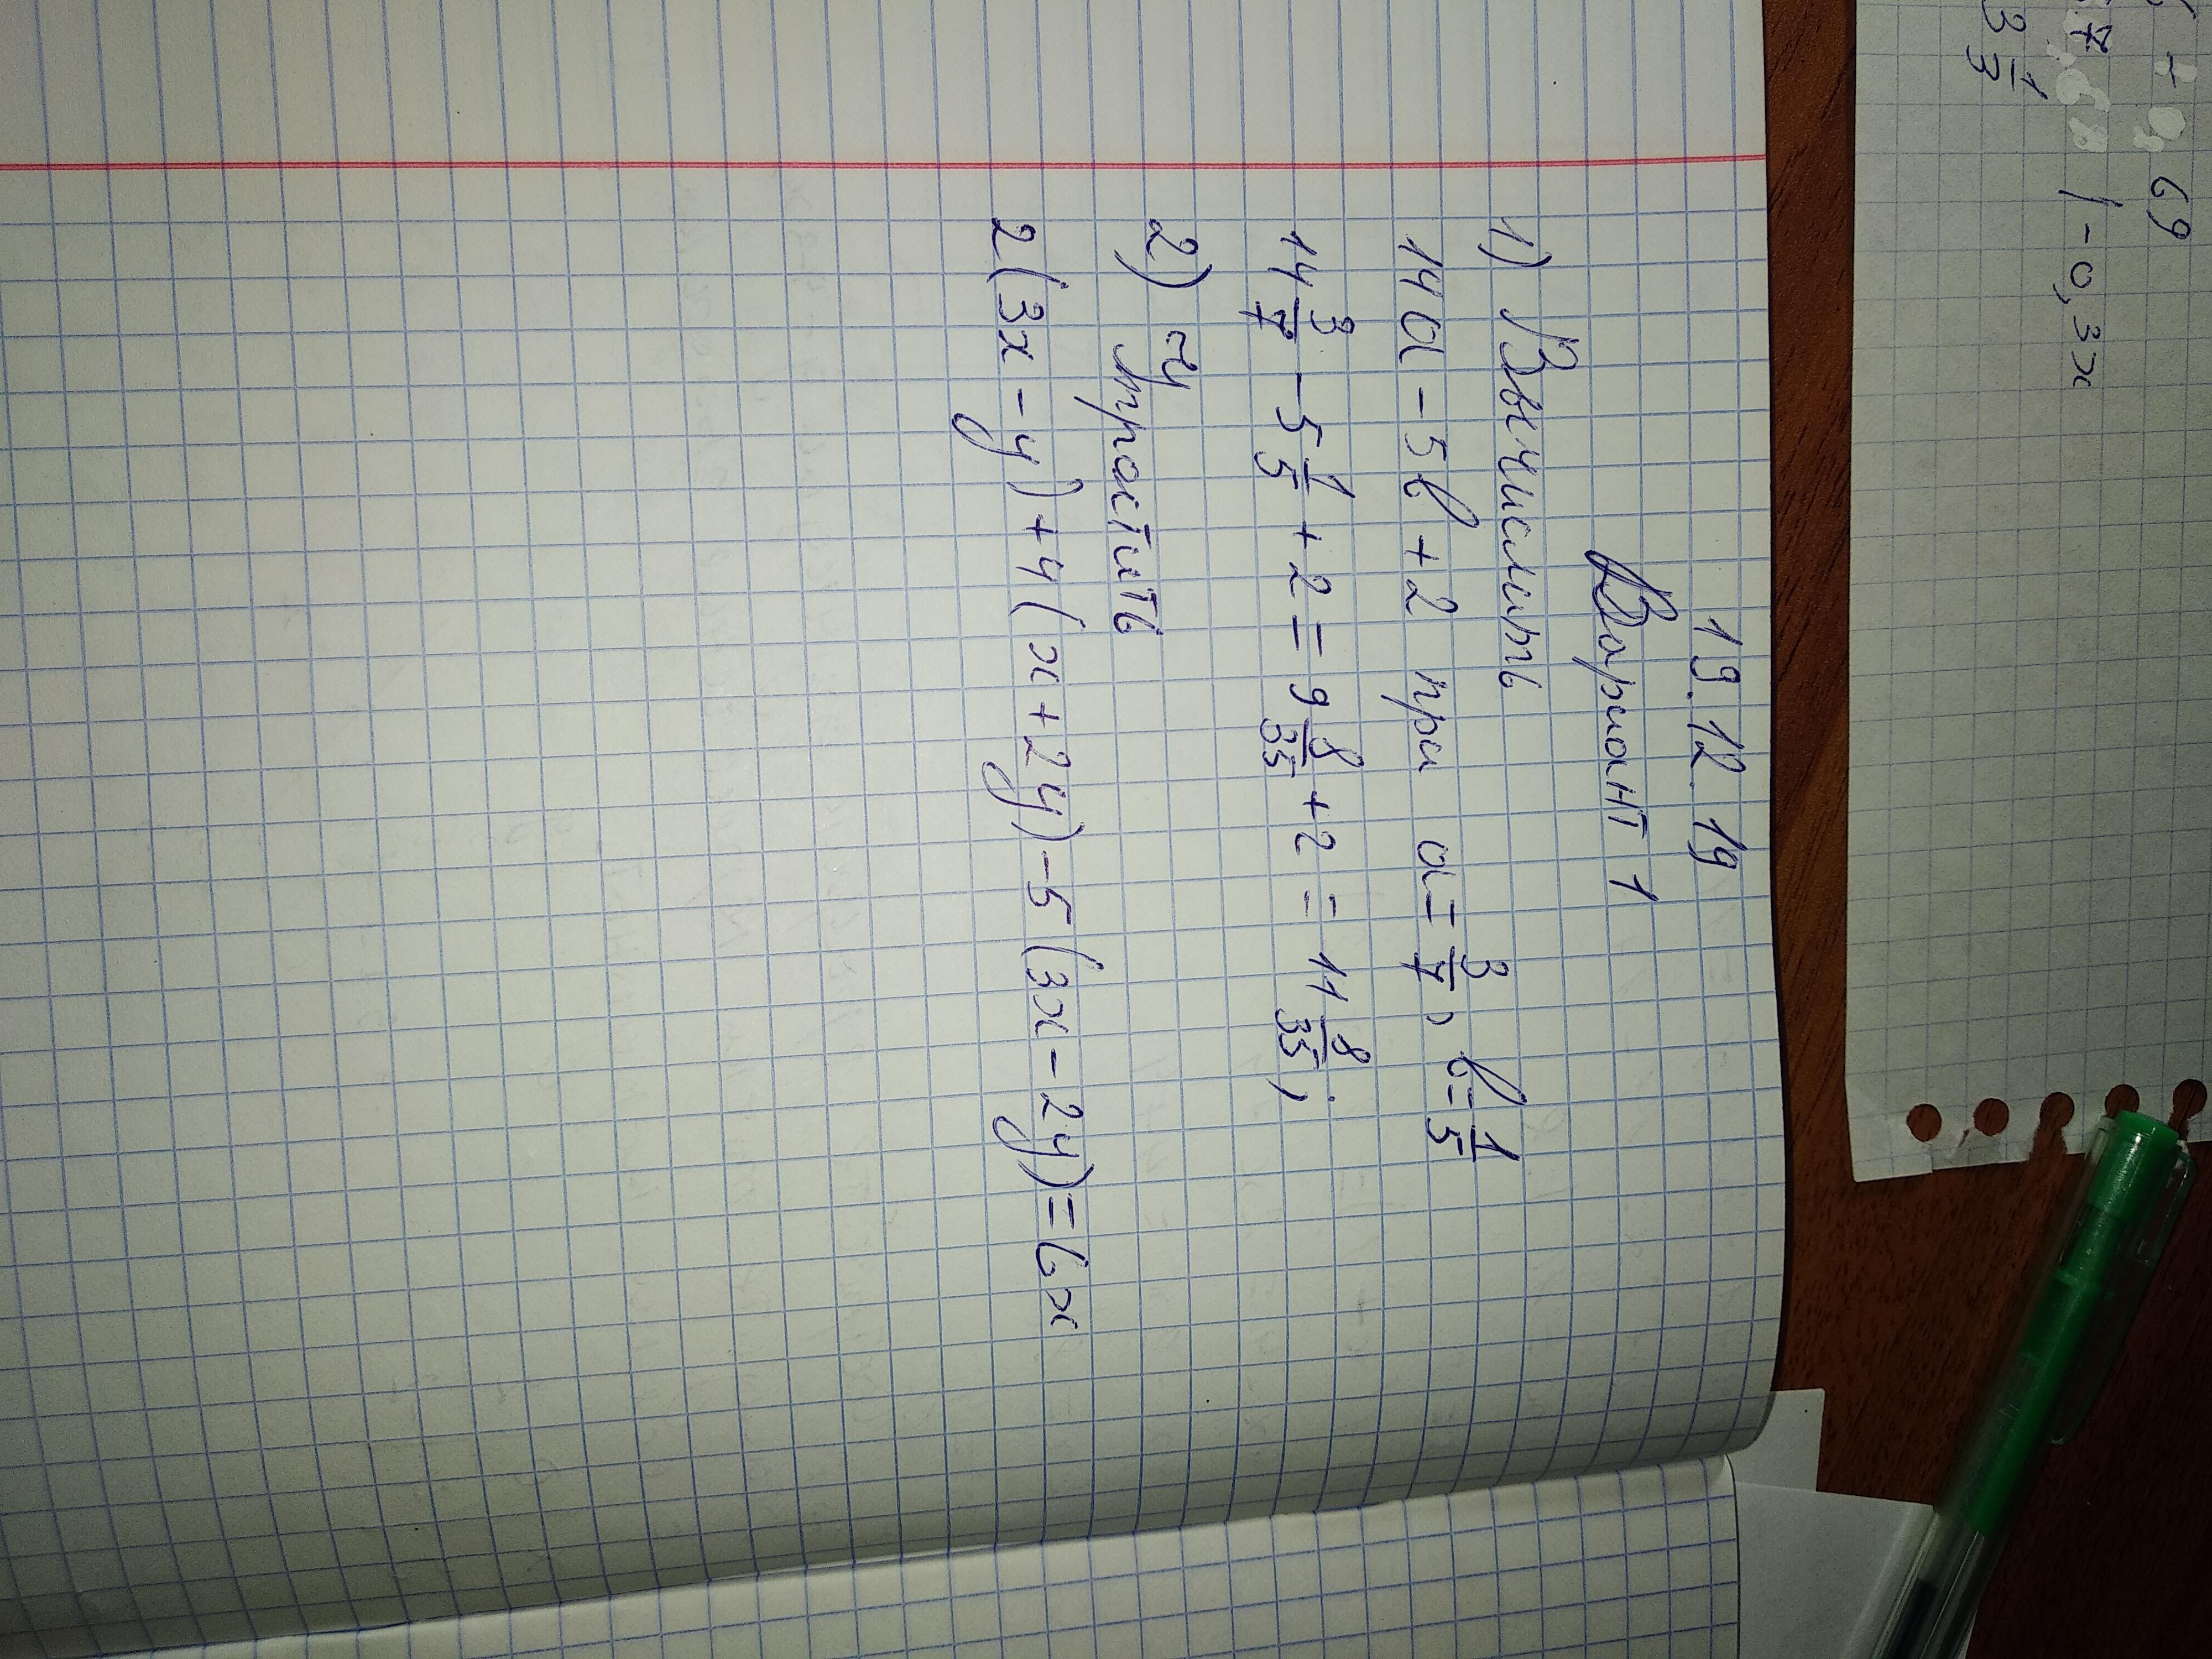 - 0,3x
3 1/3
19.12.19
Вариант 1
1) Вычислить
14a - 5b + 2 при a = 3/7, b = 1/5
14 3/7 - 5 1/5 + 2 = 9 8/35 + 2 = 11 8/35;
2) Упростить
2(3x - y) + 4(x + 2y) - 5(3x - 2y) = 6x